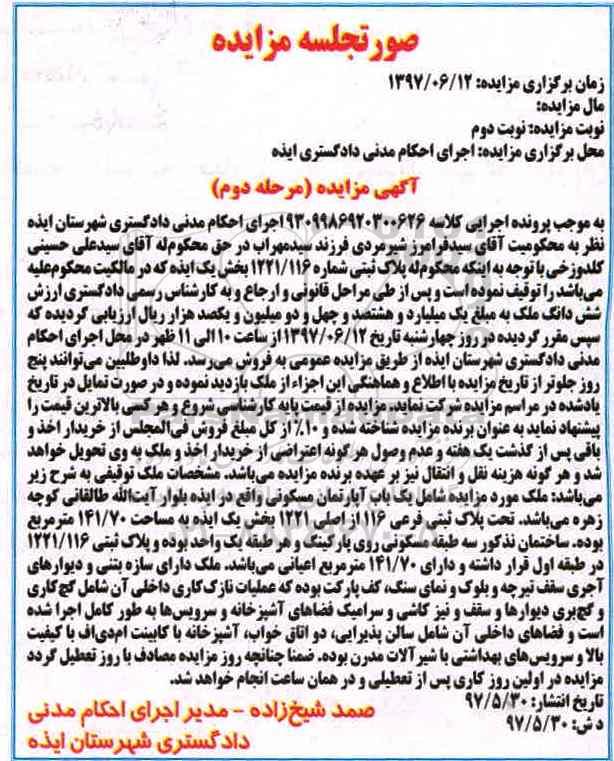 صورتجلسه مزایده
زمان برگزاری مزایده: ۱۳۹۷/۰۶/۱۲
مال مزایده:
نوبت مزایده: نوبت دوم
محل برگزاری مزایده: اجرای احکام مدنی دادگستری ایذه
آگهی مزایده (مرحله دوم)
به موجب پرونده اجرایی کلاسه ۹۳۰۹۹۸۶۹۲۰۳۰۰۶۲۶ اجرای احکام مدنی دادگستری شهرستان ایذه
نظر به محکومیت آقای سیدفرامرز شیرمردی فرزند سیدمهراب در حق محکوم‌له آقای سیدعلی حسینی
کلدوزخی با توجه به اینکه محکوم‌له پلاک ثبتی شماره ۱۲۲۱/۱۱۶ بخش یک ایذه که در مالکیت محکوم‌علیه
می‌باشد را توقیف نموده است و پس از طی مراحل قانونی و ارجاع و به کارشناس رسمی دادگستری ارزش
شش دانگ ملک به مبلغ یک میلیارد و هشتصد و چهل و دو میلیون و یکصد هزار ریال ارزیابی گردیده که
سپس مقرر گردیده در روز چهارشنبه تاریخ ۱۳۹۷/۰۶/۱۲ از ساعت ۱۰ الی ۱۱ ظهر در محل اجرای احکام
مدنی دادگستری شهرستان ایذه از طریق مزایده عمومی به فروش می‌رسد. لذا داوطلبین می‌توانند پنج
روز جلوتر از تاریخ مزایده با اطلاع و هماهنگی این اجراء از ملک بازدید نموده و در صورت تمایل در تاریخ
یادشده در مراسم مزایده شرکت نماید. مزایده از قیمت پایه کارشناسی شروع و هر کسی بالاترین قیمت را
پیشنهاد نماید به عنوان برنده مزایده شناخته شده و ۱۰٪ از کل مبلغ فروش فی‌المجلس از خریدار اخذ و
باقی پس از گذشت یک هفته و عدم وصول هر گونه اعتراضی از خریدار اخذ و ملک به وی تحویل خواهد
شد و هر گونه هزینه نقل و انتقال نیز بر عهده برنده مزایده می‌باشد. مشخصات ملک توقیفی به شرح زیر
می‌باشد: ملک مورد مزایده شامل یک باب آپارتمان مسکونی واقع در ایذه بلوار آیت‌الله طالقانی کوچه
زهره می‌باشد. تحت پلاک ثبتی فرعی ۱۱۶ از اصلی ۱۲۲۱ بخش یک ایذه به مساحت ۱۴۱/۷۰ مترمربع
بوده. ساختمان نذکور سه طبقه مسکونی روی پارکینگ و هر طبقه یک واحد بوده و پلاک ثبتی ۱۲۲۱/۱۱۶
در طبقه اول قرار داشته و دارای ۱۴۱/۷۰ مترمربع اعیانی می‌باشد. ملک دارای سازه بتنی و دیوارهای
آجری سقف تیرچه و بلوک و نمای سنگ، کف پارکت بوده که عملیات نازک‌کاری داخلی آن شامل گچ‌کاری
و گچ‌بری دیوارها و سقف و نیز کاشی و سرامیک فضاهای آشپزخانه و سرویس‌ها به طور کامل اجرا شده
است و فضاهای داخلی آن شامل سالن پذیرایی، دو اتاق خواب، آشپزخانه با کابینت ام‌دی‌اف با کیفیت
بالا و سرویس‌های بهداشتی با شیرآلات مدرن بوده. ضمنا چنانچه روز مزایده مصادف با روز تعطیل گردد
مزایده در اولین روز کاری پس از تعطیلی و در همان ساعت انجام خواهد شد.
تاریخ انتشار: ۹۷/۵/۳۰
د ش: ۹۷/۵/۳۰
صمد شیخ‌زاده - مدیر اجرای احکام مدنی
دادگستری شهرستان ایذه